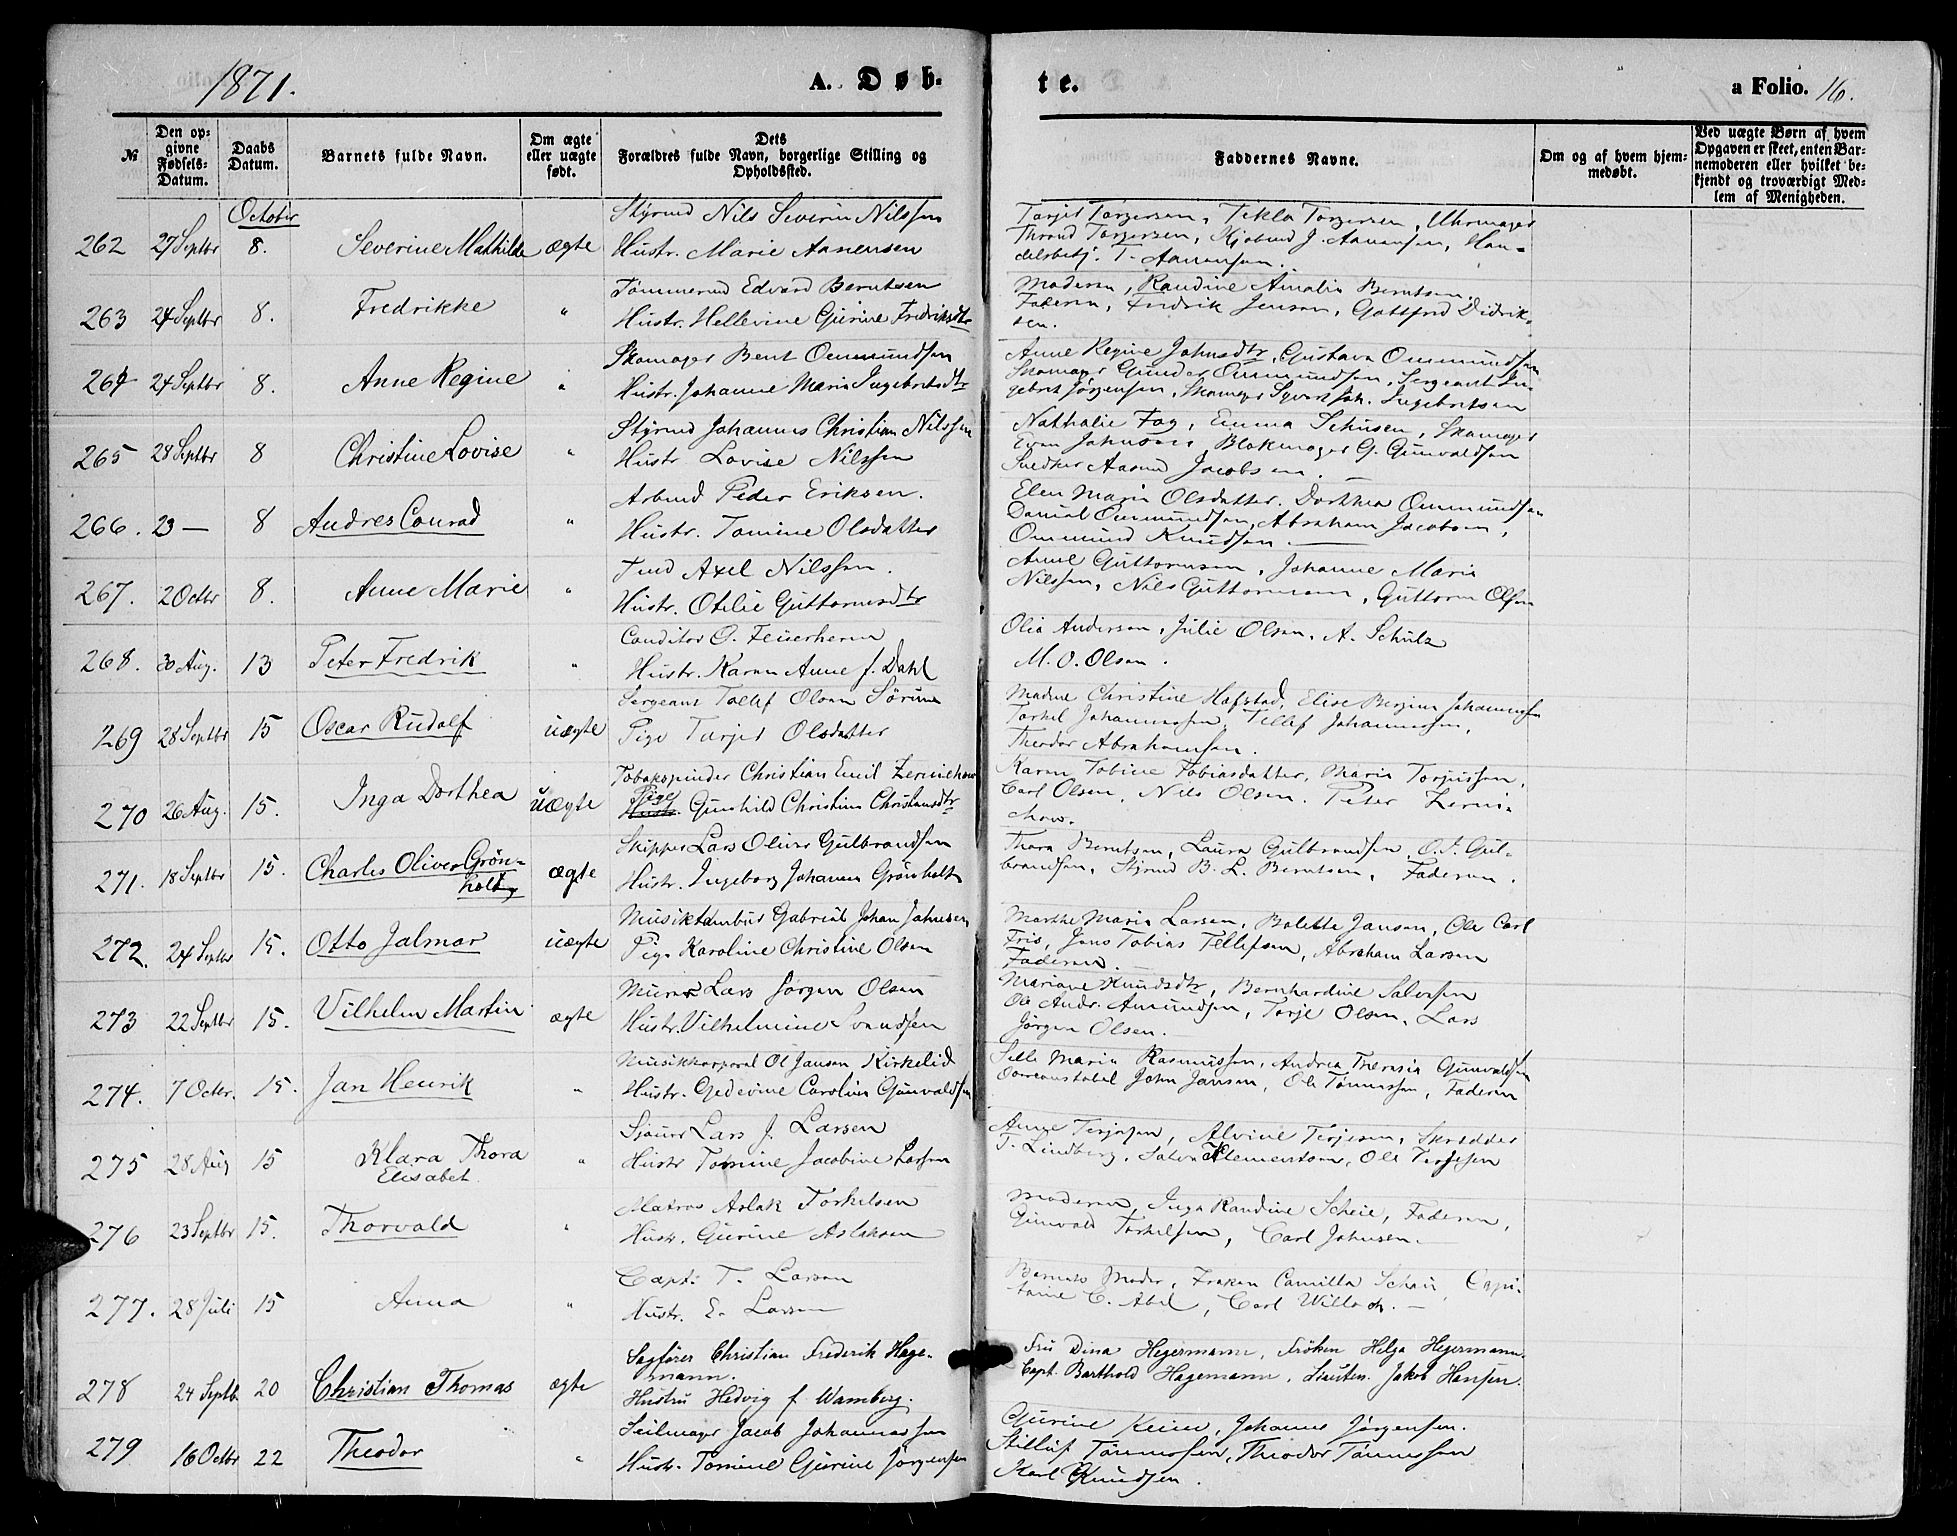 1871.
A. Døb-
te.
a Folio. 16.
№
Den op-
givne
Fødsels-
Datum.
Daabs
Datum.
Barnets fulde Navn.
Om ægte
eller uægte
født.
Dets
Forældres fulde Navn, borgerlige Stilling og
Opholdssted.
Faddernes Navne.
Om og af hvem hjem-
medøbt.
Ved uægte Børn af hvem
Opgaven er skeet, enten Bar-
nemoderen eller hvilket be-
kjendt og troværdigt Med-
lem af Menigheden.
October
262 27 Septbr 8. Severine Mathilde ægte
Styrmd Nils Severin Nilssen
Hustr. Marie Aanensen
Torjer Torgersen, Tekla Torgersen, Uhrmager
Thrond Torgersen, Kjøbmd J. Aanensen, Han-
delsbetj. T. Aanensen.
263 24 Septbr 8. Fredrikke "
Tømmermd Edvard Berntsen
Hustr. Hellevine Gurine Fredriksdtr
Moderen, Randine Amalie Berntsen,
Faderen, Fredrik Jensen, Gottfred Didrik-
sen.
264 24 Septbr 8. Anne Regine "
Skomager Bent Ommundsen
Hustr. Johanne Marie Ingebretsdtr
Anne Regine Johnsdtr, Gustava Ommundsen
Skomager Gunder Ommundsen, Sergeant In-
gebret Jørgensen, Skomager Joh. Ingebretsen
265 28 Septbr 8 Christine Lovise "
Styrmd Johannes Christian Nilssen
Hustr Lovise Nilssen
Nathalie Fog, Emma Skomager
Even Blokmager G. Gunvaldsen
Snedker Aamund Jacobsen.
266. 23 — 8 Andres Conrad "
Arbmd Peder Eriksen.
Hustr. Tomine Olsdatter
Elen Marie Olsdatter, Dorthea Ommundsen
Daniel Ommundsen, Abraham Jacobsen,
Ommund Knudsen.
267. 2 Octbr 8. Anne Marie "
Axel Nilssen.
Hustr. Otilie Guttormsdtr
Anne Guttormsen, Johanne Marie
Nilssen, Nils Guttormsen, Guttorm Olsen
268. 30 Aug. 13 Peter Fredrik "
Conditor O.
Hustr. Karen Anne f. Dahl
Olia Andersen, Julie Olsen, A. Schulz
M. O. Olsen.
269 28 Septbr 15 Oscar Rudolf uægte
Sergeant Tollef Olsen
Pige Torjer Olsdatter
Madme Christine Hafstad, Elise Bergine Johannessen
Torkel Johannessen, Tellef Johannessen,
Theodor Abrahamsen.
270 26 Aug. 15. Inga Dorthea uægte
Tobakspinder Christian Emil Zernichow
Pige
Hustr. Gunhild Christine Christensdtr
Karen Tobine Tobiasdatter, Maria Torjussen,
Carl Olsen, Nils Olsen, Peter Zerni-
chow.
271. 18 Septbr 15. Charles Oliver Grön- ægte
holt
Skipper Lars Oliver Gulbrandsen
Hustr. Ingeborg Johanne Grönholt
Thora Berntsen, Laura Gulbrandsen, O. S. Gul-
brandsen, Styrmd B. L. Berntsen, Faderen.
272. 24 Septbr 15. Otto Jalmar uægte
Musiktambur Gabriel Johan Johnsen
Pige Karoline Christine Olsen
Marthe Marie Larsen, Bolette Jansen, Ole Carl
Fris, Jens Tobias Tellefsen, Abraham Larsen
Faderen.
273 22 Septbr 15. Vilhelm Martin ægte
Murer Lars Jörgen Olsen
Hustr. Vilhelmine Svendsen
Mariane Knudsdtr, Bernhardine Salvesen
Ole Andr. Amundsen, Torje Olsen, Lars
Jörgen Olsen.
274. 7 Octbr. 15. Jan Henrik "
Musikkorporal Ol Jansen Kirkelid
Hustr. Gedevine Caroline Gunvaldsen
Sille Maria Rasmussen, Andrea Theresia Gunvaldsen
Overconstabel John Jansen, Ole Tönnessen, Faderen
275 28 Aug 15 Klara Thora "
Elisabet.
Sjouer Lars J. Larsen
Hustr Tomine Jacobine Larsen
Anne Terjesen, Alvine Terjesen, Skrædder
T. Lindberg, Salve Klementsen, Ole Terjesen
276 23 Septbr 15. Thorvald "
Matros Aslak Torkelsen
Hustr. Gurine Aslaksen
Moderen, Inga Randine Scheie, Faderen,
Gunvald Torkelsen, Carl Johnsen.
277. 28 Juli 15 Anna "
Capt. T. Larsen
Hustr. E. Larsen
Barnets Moder, Fröken Camilla Capi-
taine C. Abel, Carl Willoch.
278 24 Septb. 20 Christian Thomas ægte
Sagfører Christian Frederik Hage-
mann.
Hustru Hedvig f. Wamberg.
Fru Dina Hegermann, Fröken Helga Hegermann.
Capt. Barthold Hagemann, Lieuten. Jakob Hansen.
279 16 Octbr 22 Theodor "
Seilmager Jacob Johannessen
Hustr. Tomine Gurine Jørgensen
Gurine Johanne Jørgensen.
Tönnessen, Theodor Tönnessen
Karl Knudsen.